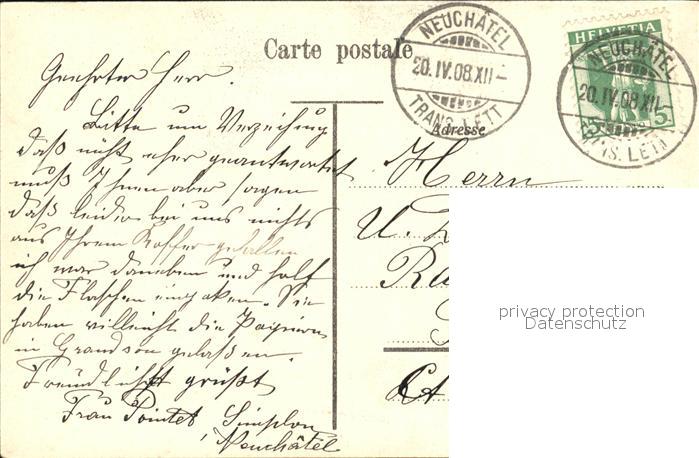 Carte postale
NEUCHÂTEL
20.IV.08.XII-
TRANS. LETT
HELVETIA
5
NEUCHÂTEL
20.IV.08.XII-
TRANS. LETT
Adresse
Geehrter Herr.
Bitte um Verzeihung
daß nicht eher geantwortet
muß Ihnen aber sagen
daß leider bei uns nichts
aus Ihrem Koffer gefallen
ich war daneben und half
die Flaschen einpaken. Sie
haben villeicht die Papiere
in Grandson gelaßen.
Freundlichst grüßt
Frau Pointet Simplon
Neuchâtel
Herrn
U.
privacy protection
Datenschutz